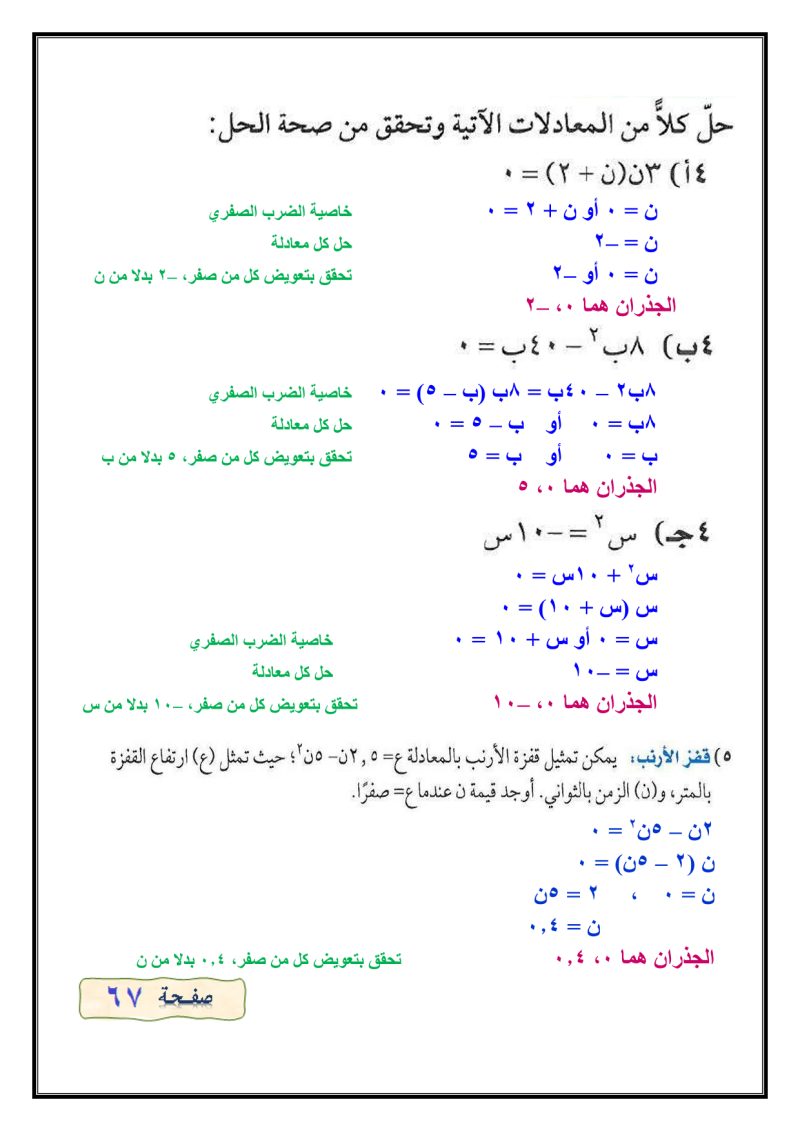 حلّ كلاًّ من المعادلات الآتية وتحقق من صحة الحل:
٤أ) ٣ن(ن + ٢) = ٠
ن = ٠ أو ن + ٢ = ٠ خاصية الضرب الصفري
ن = –٢ حل كل معادلة
ن = ٠ أو –٢ تحقق بتعويض كل من صفر، –٢ بدلا من ن
الجذران هما ٠، –٢
٤ب) ٨ب٢ – ٤٠ب = ٠
٨ب٢ – ٤٠ب = ٨ب (ب – ٥) = ٠ خاصية الضرب الصفري
٨ب = ٠ أو ب – ٥ = ٠ حل كل معادلة
ب = ٠ أو ب = ٥ تحقق بتعويض كل من صفر، ٥ بدلا من ب
الجذران هما ٠، ٥
٤جـ) س٢ = –١٠س
س٢ + ١٠س = ٠
س (س + ١٠) = ٠
س = ٠ أو س + ١٠ = ٠ خاصية الضرب الصفري
س = –١٠ حل كل معادلة
الجذران هما ٠، –١٠ تحقق بتعويض كل من صفر، –١٠ بدلا من س
٥) قفز الأرنب: يمكن تمثيل قفزة الأرنب بالمعادلة ع= ٢,٥ن– ٥ن٢؛ حيث تمثل (ع) ارتفاع القفزة
بالمتر، و(ن) الزمن بالثواني. أوجد قيمة ن عندما ع= صفرًا.
٢ن – ٥ن٢ = ٠
ن (٢ – ٥ن) = ٠
ن = ٠ ، ٢ = ٥ن
ن = ٠,٤
الجذران هما ٠، ٠,٤ تحقق بتعويض كل من صفر، ٠,٤ بدلا من ن
صفحة ٦٧